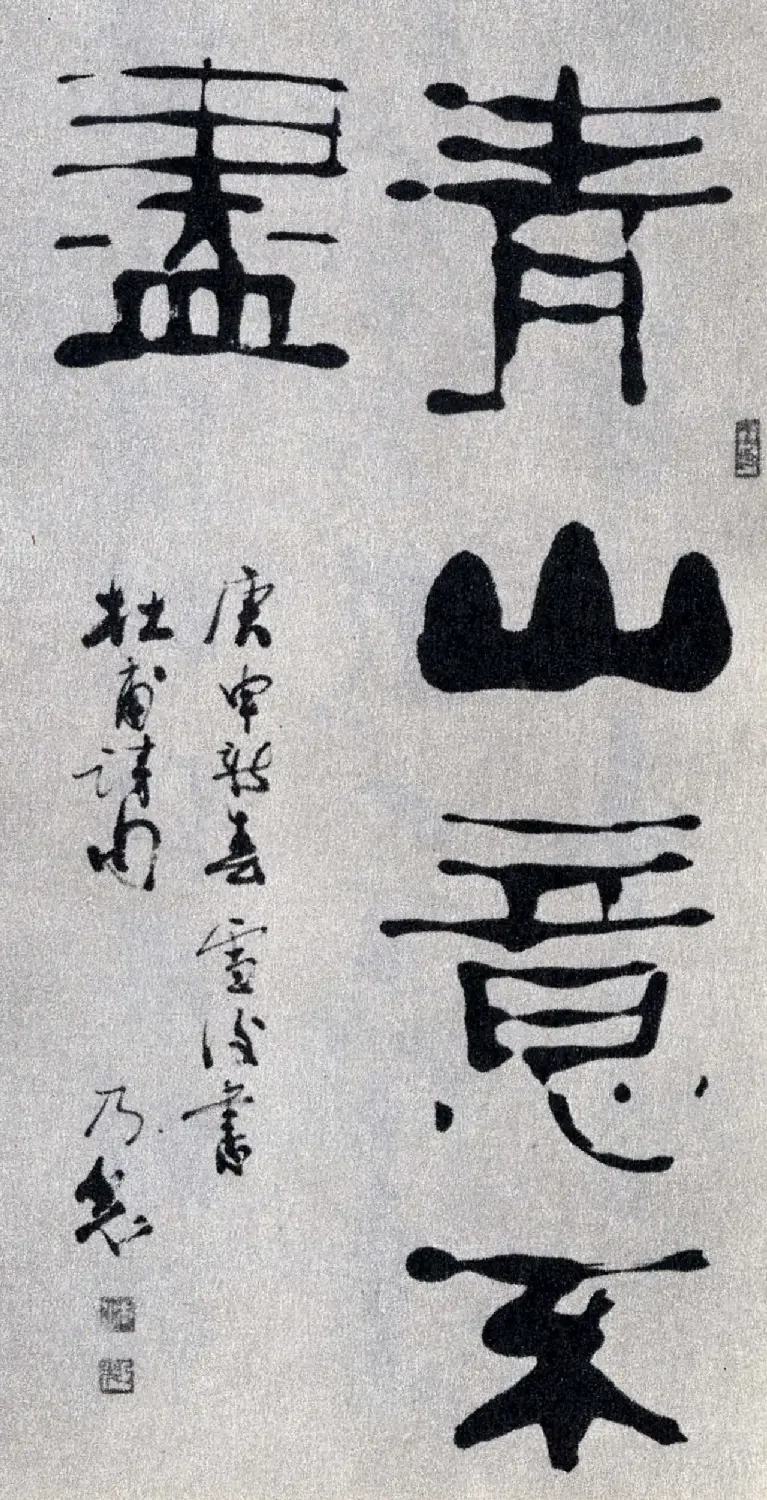 青山意不
盡
庚申新春雪後書
杜甫詩句
乃